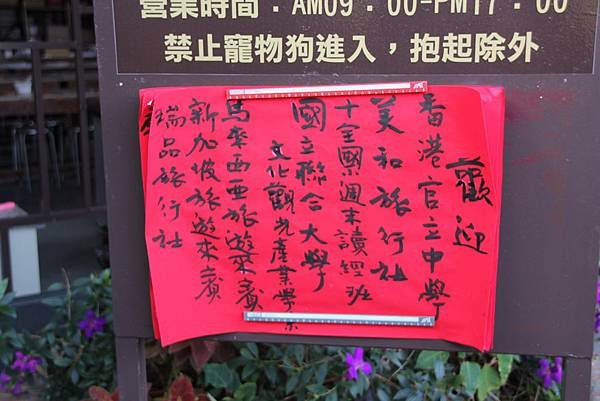 營業時間：AM09：00-PM17：00
禁止寵物狗進入，抱起除外
歡迎
香港官立中學
美和旅行社
十全國小週末讀經班
國立聯合大學
文化觀光產業學系
馬來西亞旅遊來賓
新加坡旅遊來賓
瑞品旅行社